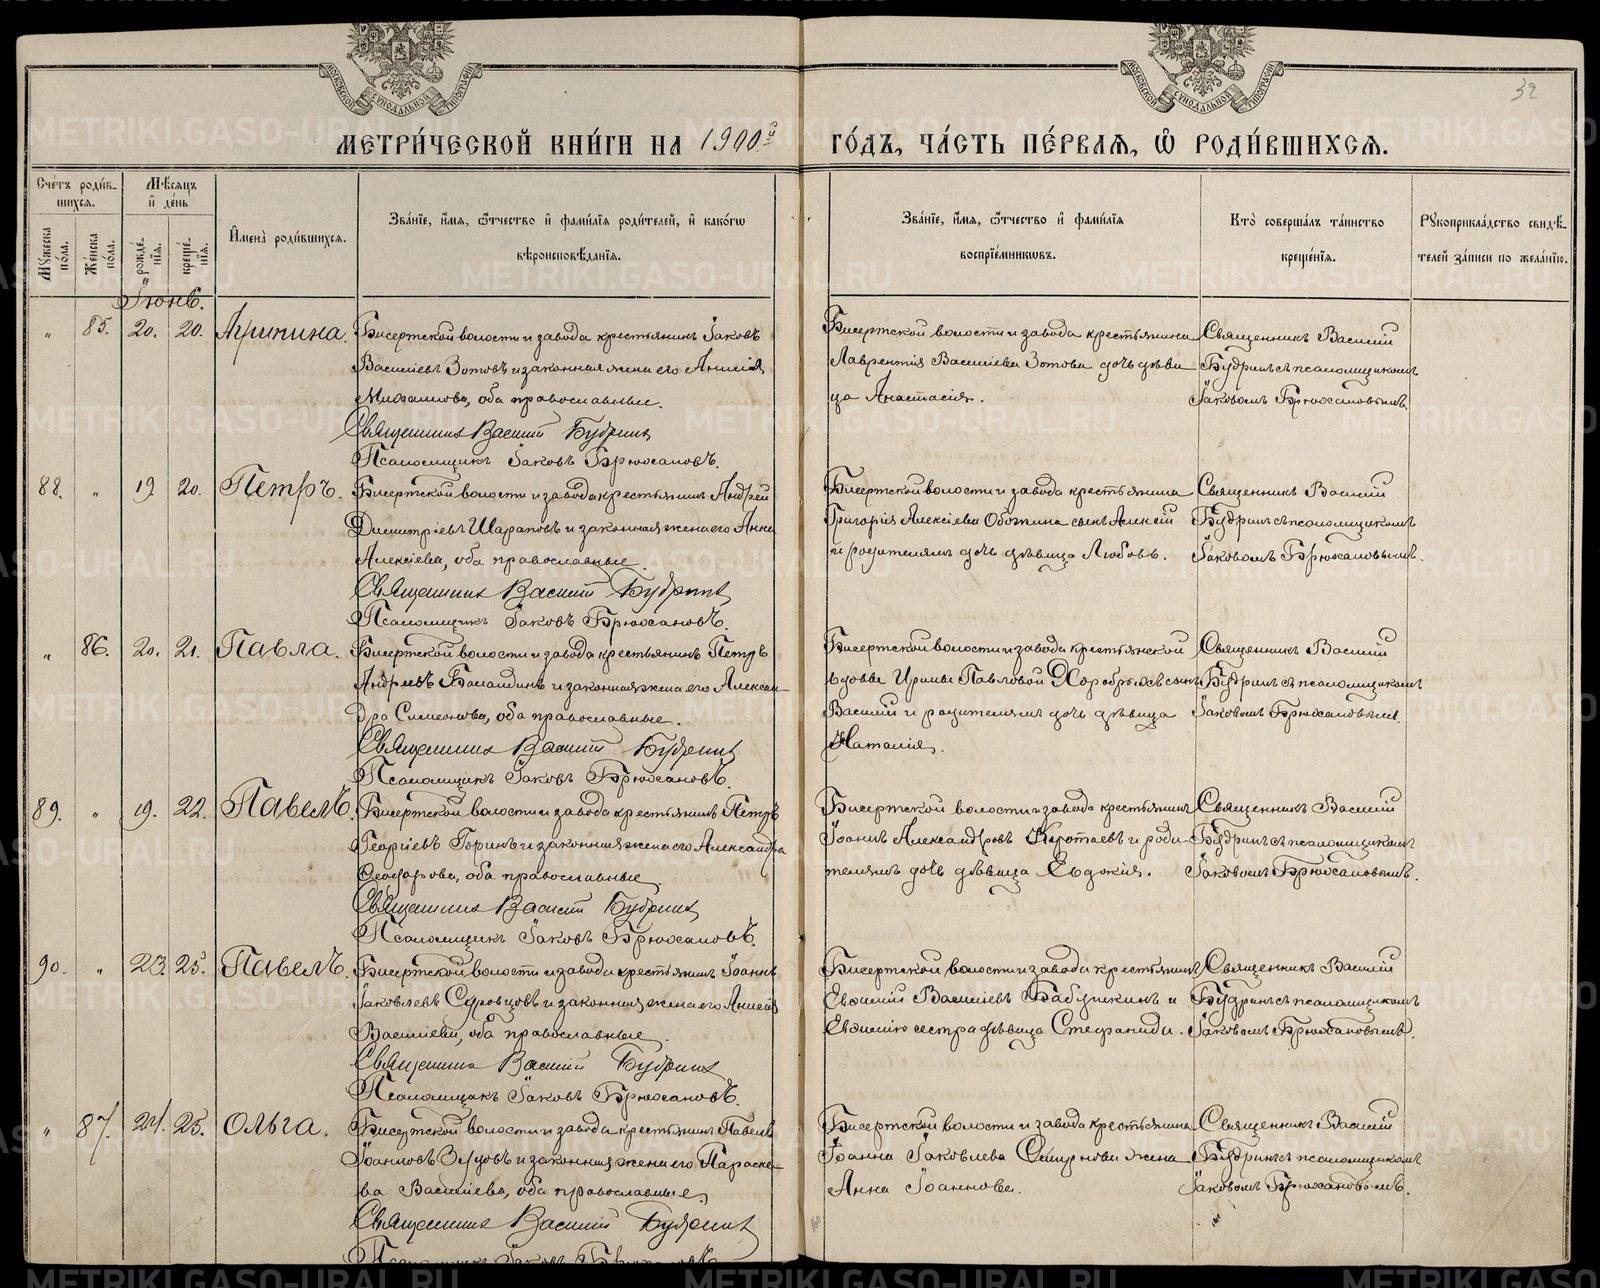 МОСКОВСКОЙ СѴНОДАЛЬНОЙ ТИПОГРАФІИ
МОСКОВСКОЙ СѴНОДАЛЬНОЙ ТИПОГРАФІИ
32
МЕТРИ́ЧЕСКОЙ КНИ́ГИ НА 1900й ГО́ДЪ, ЧА́СТЬ ПЕ́РВАѦ, Ѽ РОДИ́ВШИХСѦ.
Сче́тъ роди́в-
шихсѧ.
Мѣ́сѧцъ
и҆ де́нь
Мꙋ́жеска по́ла.
Же́нска по́ла.
рожде́-
нїѧ.
креще́-
нїѧ.
И҆мена̀ роди́вшихсѧ.
Зва́нїе, и҆́мѧ, ѻ҆́тчество и҆ фами́лїѧ роди́телей, и҆ како́гѡ
вѣроисповѣ́данїѧ.
Зва́нїе, и҆́мѧ, ѻ҆́тчество и҆ фами́лїѧ
воспрїе́мникѡвъ.
Кто̀ соверша́лъ та́инство
креще́нїѧ.
Рꙋкоприкла́дство свидѣ́-
телей за́писи по жела́нїю.
Іюнь.
" 85. 20. 20. Агрипина.
Бисертской волости и завода крестьянинъ Іаковъ
Василіевъ Зотовъ и законная жена его Анисія
Михаилова, оба православные.
Священникъ Василій Будринъ
Псаломщикъ Іаковъ Брюхановъ.
Бисертской волости и завода крестьянина
Лаврентія Василіева Зотова дочь дѣви
ца Анастасія.
Священникъ Василій
Будринъ съ псаломщикомъ
Іаковомъ Брюхановымъ.
88. " 19 20. Петръ.
Бисертской волости и завода крестьянинъ Андрей
Димитріевъ Шараповъ и законная жена его Анна
Алексіева, оба православные.
Священникъ Василій Будринъ
Псаломщикъ Іаковъ Брюхановъ.
Бисертской волости и завода крестьянина
Григорія Алексіева Обожина сынъ Алексій
и родителямъ дочь дѣвица Любовь.
Священникъ Василій
Будринъ съ псаломщикомъ
Іаковомъ Брюхановымъ.
" 86. 20. 21. Павла.
Бисертской волости и завода крестьянинъ Петръ
Андреевъ Баландинъ и законная жена его Алексан-
дра Симеонова, оба православные.
Священникъ Василій Будринъ
Псаломщикъ Іаковъ Брюхановъ.
Бисертской волости и завода крестьянской
вдовы Ирины Павловой Хоробрыхъ сынъ
Василій и родителямъ дочь дѣвица
Наталія.
Священникъ Василій
Будринъ съ псаломщикомъ
Іаковомъ Брюхановымъ.
89. " 19. 22. Павелъ.
Бисертской волости и завода крестьянинъ Петръ
Георгіевъ Горинъ и законная жена его Александра
Ѳеодорова, оба православные.
Священникъ Василій Будринъ
Псаломщикъ Іаковъ Брюхановъ.
Бисертской волости и завода крестьянинъ
Іоаннъ Александровъ Коротаевъ и роди-
телямъ дочь дѣвица Евдокія.
Священникъ Василій
Будринъ съ псаломщикомъ
Іаковомъ Брюхановымъ.
90. " 23. 25. Павелъ.
Бисертской волости и завода крестьянинъ Іоаннъ
Іаковлевъ Суровцовъ и законная жена его Анисія
Василіева, оба православные.
Священникъ Василій Будринъ
Псаломщикъ Іаковъ Брюхановъ.
Бисертской волости и завода крестьянинъ
Евѳимій Василіевъ Бабушкинъ и
Евѳимію сестра дѣвица Стефанида.
Священникъ Василій
Будринъ съ псаломщикомъ
Іаковомъ Брюхановымъ.
" 87. 24. 25. Ольга.
Бисертской волости и завода крестьянинъ Павелъ
Іоанновъ и законная жена его Параске-
ва Василіева, оба православные.
Священникъ Василій Будринъ
Псаломщикъ Іаковъ Брюхановъ.
Бисертской волости и завода крестьянина
Іоанна Іаковлева Смирнова жена
Анна Іоаннова.
Священникъ Василій
Будринъ съ псаломщикомъ
Іаковомъ Брюхановымъ.
METRIKI.GASO-URAL.RU